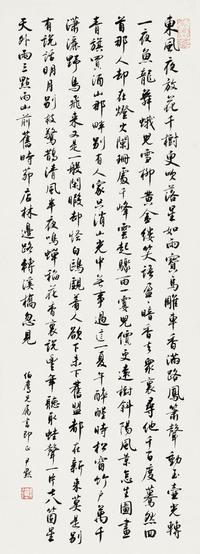 東風夜放花千樹更吹落星如雨寶馬雕車香滿路鳳簫聲動玉壺光轉
一夜魚龍舞蛾兒雪柳黃金縷笑語盈盈暗香去衆裏尋他千百度驀然回
首那人却在燈火闌珊處千峰雲起驟雨一霎兒價更遠樹斜陽風景怎生圖畫
青旗賣酒山那畔別有人家只消山光中無事過這一夏午醉醒時松窗竹戶萬千
瀟灑野鳥飛來又是一般閑暇却怪白鷗覷着人欲下未下舊盟都在新來莫是別
有說話明月別枝驚鵲清風半夜鳴蟬稻花香裏說豐年聽取蛙聲一片七八箇星
天外兩三點雨山前舊時茆店林邊路轉溪橋忽見
伯鷹兄屬書即正 尹默